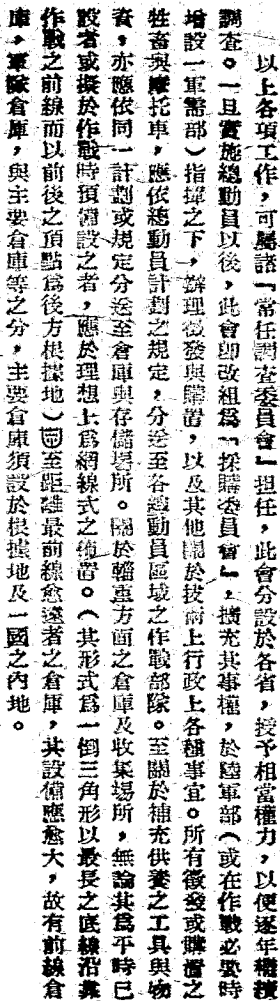 以上各項工作，可屬諸「常任調查委員會」担任，此會分設於各省，授予相當權力，以便逐年繼續
調查。一旦實施總動員以後，此會卽改組爲「採購委員會」，擴充其事權，於陸軍部（或在作戰必要時
增設一軍需部）指揮之下，辦理徵發與購置，以及其他關於技術上行政上各種事宜。所有徵發或購置之
牲畜與摩托車，應依總動員計劃之規定，分送至各總動員區域之作戰部隊。至關於補充供養之工具與物
資，亦應依同一計劃或規定分送至倉庫與存儲場所。關於輜重方面之倉庫及收集場所，無論其爲平時已
設者或擬於作戰時預備設之者，應於理想上爲網線式之佈置。（其形式爲一倒三角形以最長之底線沿其
作戰之前線而以前後之頂點爲後方根據地）至距離最前線愈遠者之倉庫，其設備應愈大，故有前線倉
庫，軍隊倉庫，與主要倉庫等之分，主要倉庫須設於根據地及一國之內地。